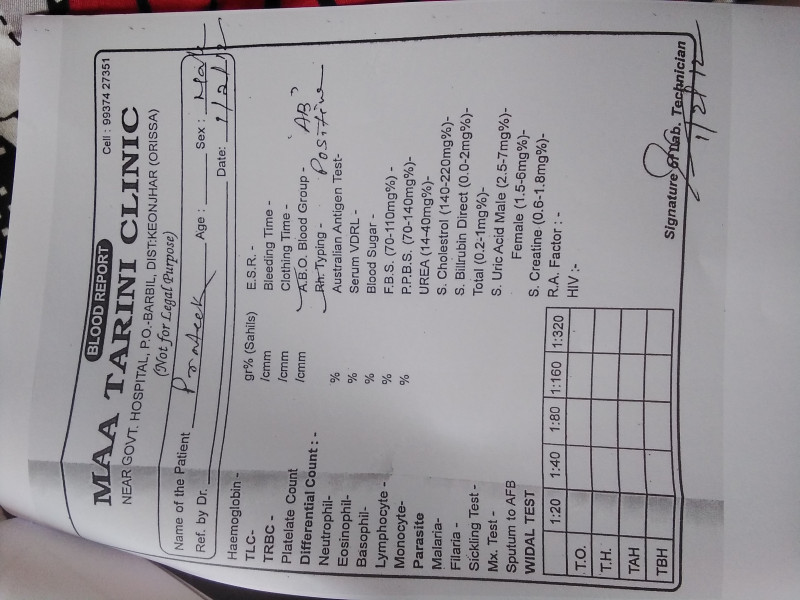 BLOOD REPORT
Cell : 99374 27351
MAA TARINI CLINIC
NEAR GOVT. HOSPITAL, P.O.-BARBIL, DIST:KEONJHAR (ORISSA)
(Not for Legal Purpose)
Name of the Patient Prateek
Ref. by Dr. Age : Sex : Male
Date: 1/2/12
Haemoglobin - gr% (Sahils)
TLC- /cmm
TRBC - /cmm
Platelate Count /cmm
Differential Count : -
Neutrophil- %
Eosinophil- %
Basophil- %
Lymphocyte - %
Monocyte- %
Parasite
Malaria-
Filaria -
Sickling Test -
Mx. Test -
Sputum to AFB
WIDAL TEST
1:20 1:40 1:80 1:160 1:320
T.O.
T.H.
TAH
TBH
E.S.R. -
Bleeding Time -
Clothing Time -
A.B.O. Blood Group - "AB"
Rh. Typing - Positive
Australian Antigen Test-
Serum VDRL -
Blood Sugar -
F.B.S. (70-110mg%) -
P.P.B.S. (70-140mg%)-
UREA (14-40mg%)-
S. Cholestrol (140-220mg%)-
S. Billrubin Direct (0.0-2mg%)-
Total (0.2-1mg%)-
S. Uric Acid Male (2.5-7mg%)-
Female (1.5-6mg%)-
S. Creatine (0.6-1.8mg%)-
R.A. Factor : -
HIV :-
Signature of Lab. Technician
1/2/12